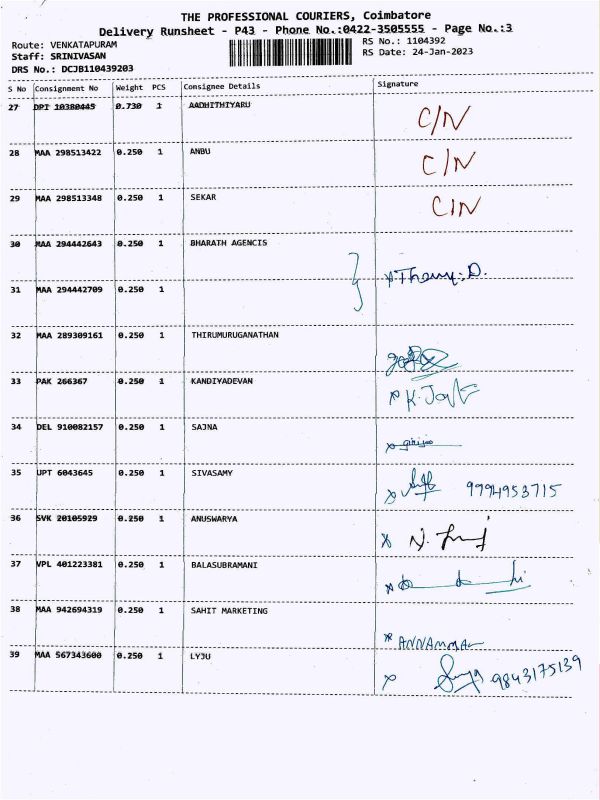 THE PROFESSIONAL COURIERS, Coimbatore
Delivery Runsheet - P43 - Phone No.:0422-3505555 - Page No.:3
Route: VENKATAPURAM
Staff: SRINIVASAN
DRS No.: DCJB110439203
RS No.: 1104392
RS Date: 24-Jan-2023
S No Consignment No Weight PCS Consignee Details Signature
27 DPI 10380445 0.730 1 AADHITHIYARU C/N
28 MAA 298513422 0.250 1 ANBU C/N
29 MAA 298513348 0.250 1 SEKAR C/N
30 MAA 294442643 0.250 1 BHARATH AGENCIS
31 MAA 294442709 0.250 1
32 MAA 289309161 0.250 1 THIRUMURUGANATHAN
33 PAK 266367 0.250 1 KANDIYADEVAN
34 DEL 910082157 0.250 1 SAJNA
35 UPT 6043645 0.250 1 SIVASAMY 9994953715
36 SVK 20105929 0.250 1 ANUSWARYA
37 VPL 401223381 0.250 1 BALASUBRAMANI
38 MAA 942694319 0.250 1 SAHIT MARKETING ANNAMMAL
39 MAA 567343600 0.250 1 LYJU 9843175139